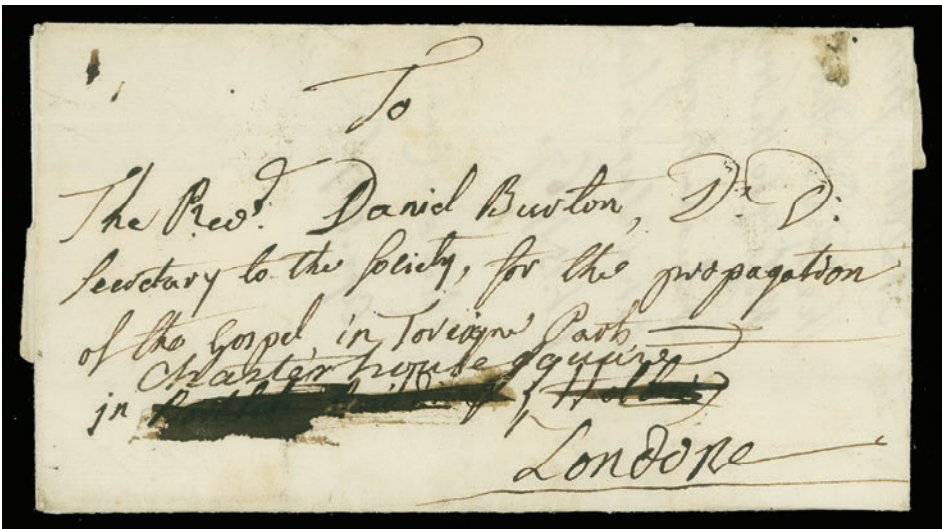 To
The Revd. Daniel Burton, Dr D:
Secretary to the Society, for the propagation
of the Gospel, in Foreign Parts,
Charter house Square
in
Londone